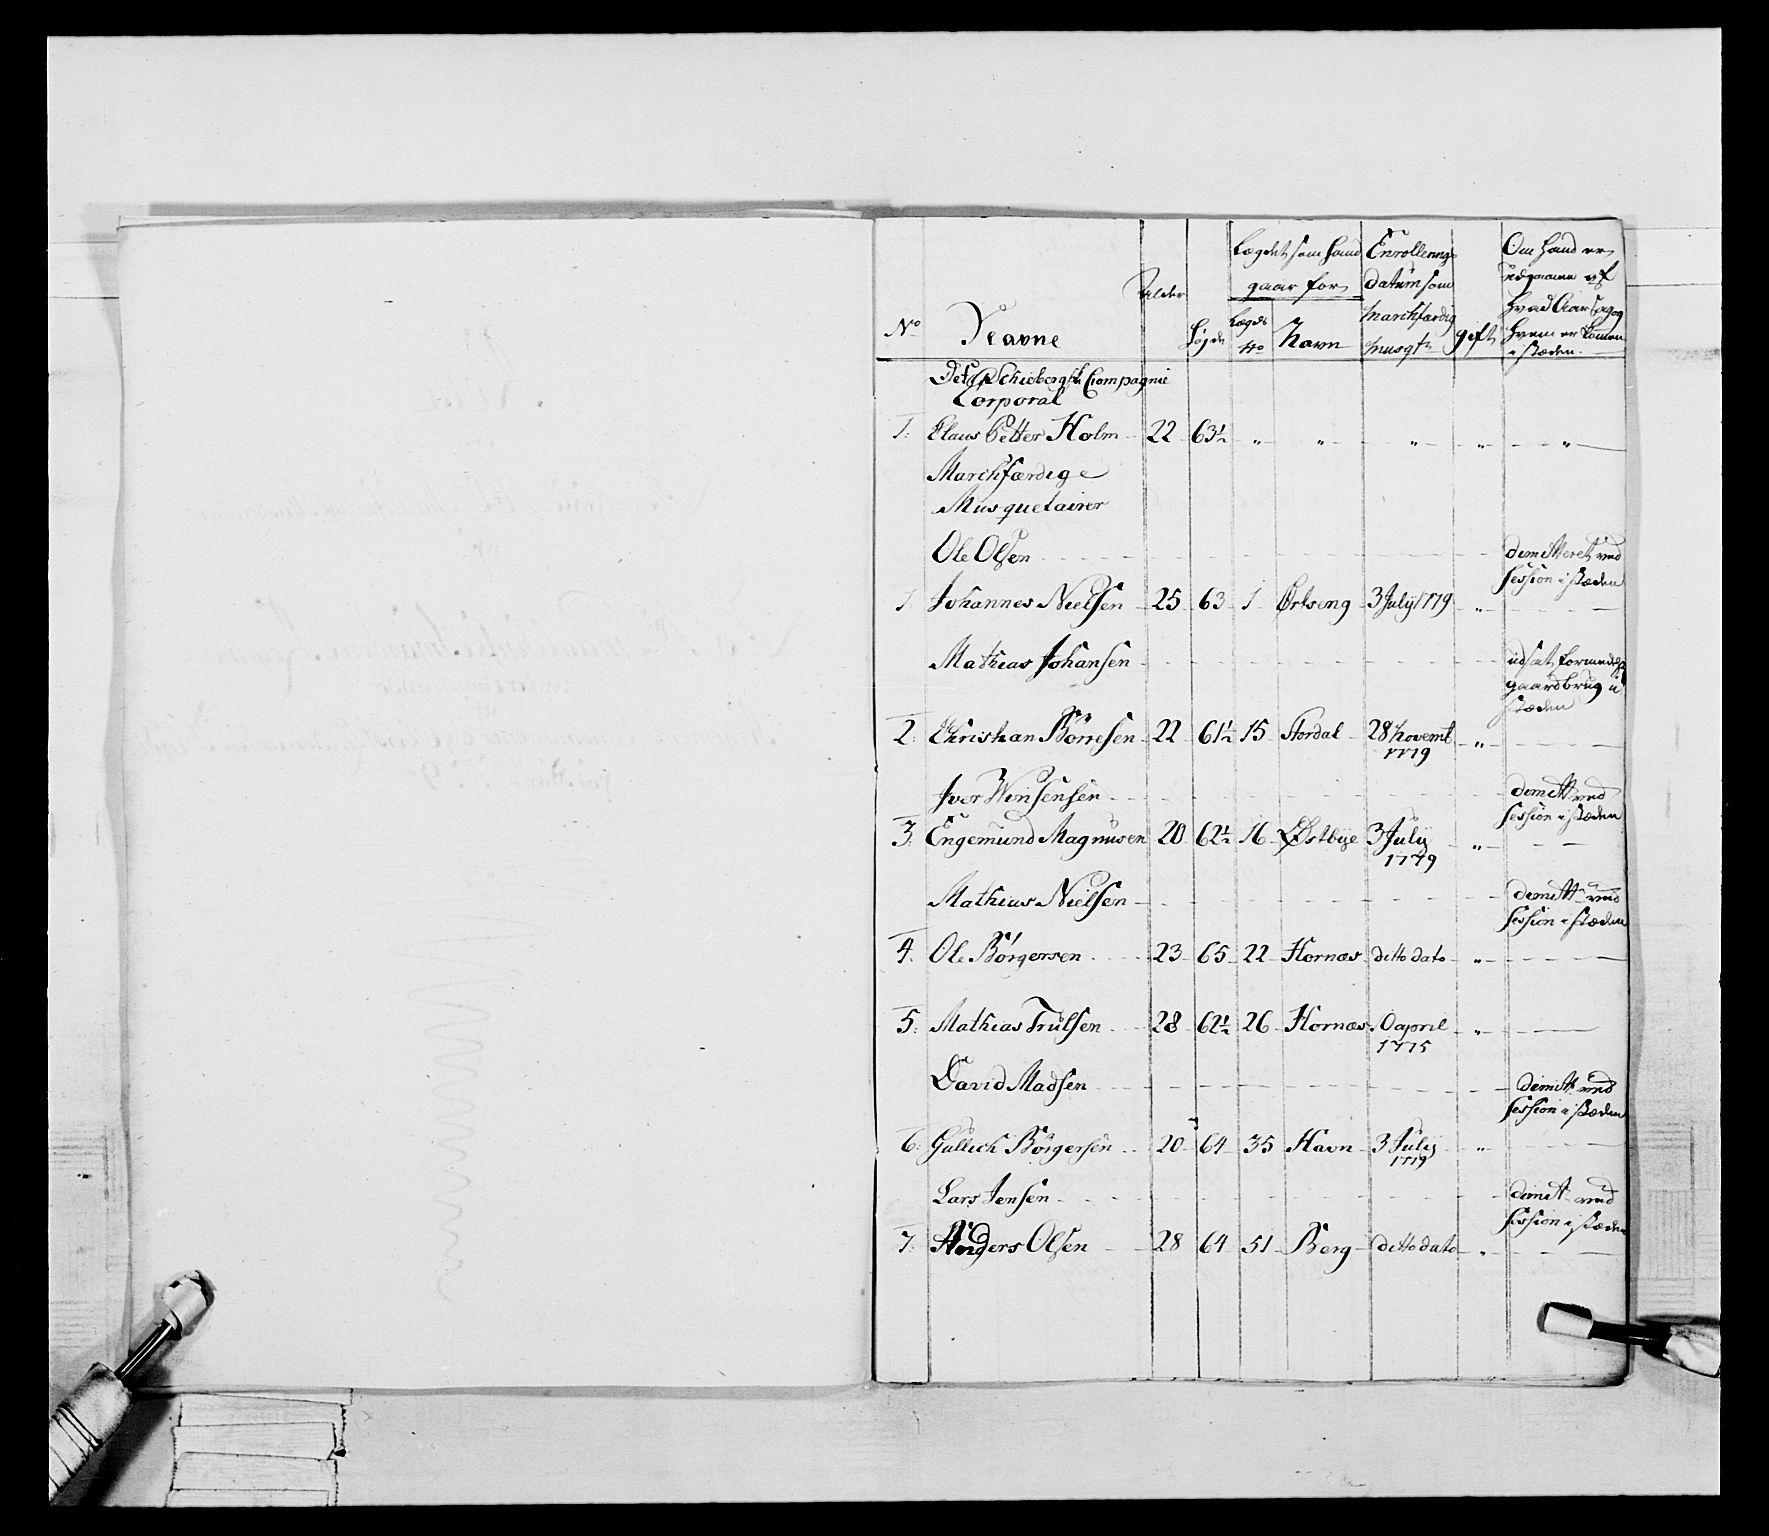 No
Navne
Alder
Høyde
Lægdet som hand
gaar for
Lægds
No
Navn
Enrollerings
datum som
Marchfærdig
musqtr
gift
Om hand er
udgaaen af
hvad Aarsag og
hvem er kommen
i stæden.
Det Schiebergske Compagnie
Corporal
1. Claus Petter Holm 22 63½ " " " " "
Marchfærdige
Musquetairer
Ole Olsen demitteret ved
session i stæden
1 Johannes Nielsen 25 63 1 Ørkeng 3 July 1779 "
Mathias Johansen udsat formedelst
gaardbrug i
stæden
2. Christian Börresen 22 61½ 15 Stordal 28 Novemb "
1779
Iver demitt ved
session i stæden
3. Engemund Magnusen 20 62½ 16 Østbye 3 July "
1779
Mathias Nielsen demitt ved
session i stæden
4. Ole Börgersen 23 65 22 Hornæs ditto dato "
5. Mathias Trulsen 28 62½ 26 Hornæs april "
1775
David Madsen demitt ved
session i stæden
6. Gullich Börgersen 20 64 35 Havn 3 July "
1779
Lars Jensen demitt ved
session i stæden
7. Anders Olsen 28 64 51 Berg ditto dato "